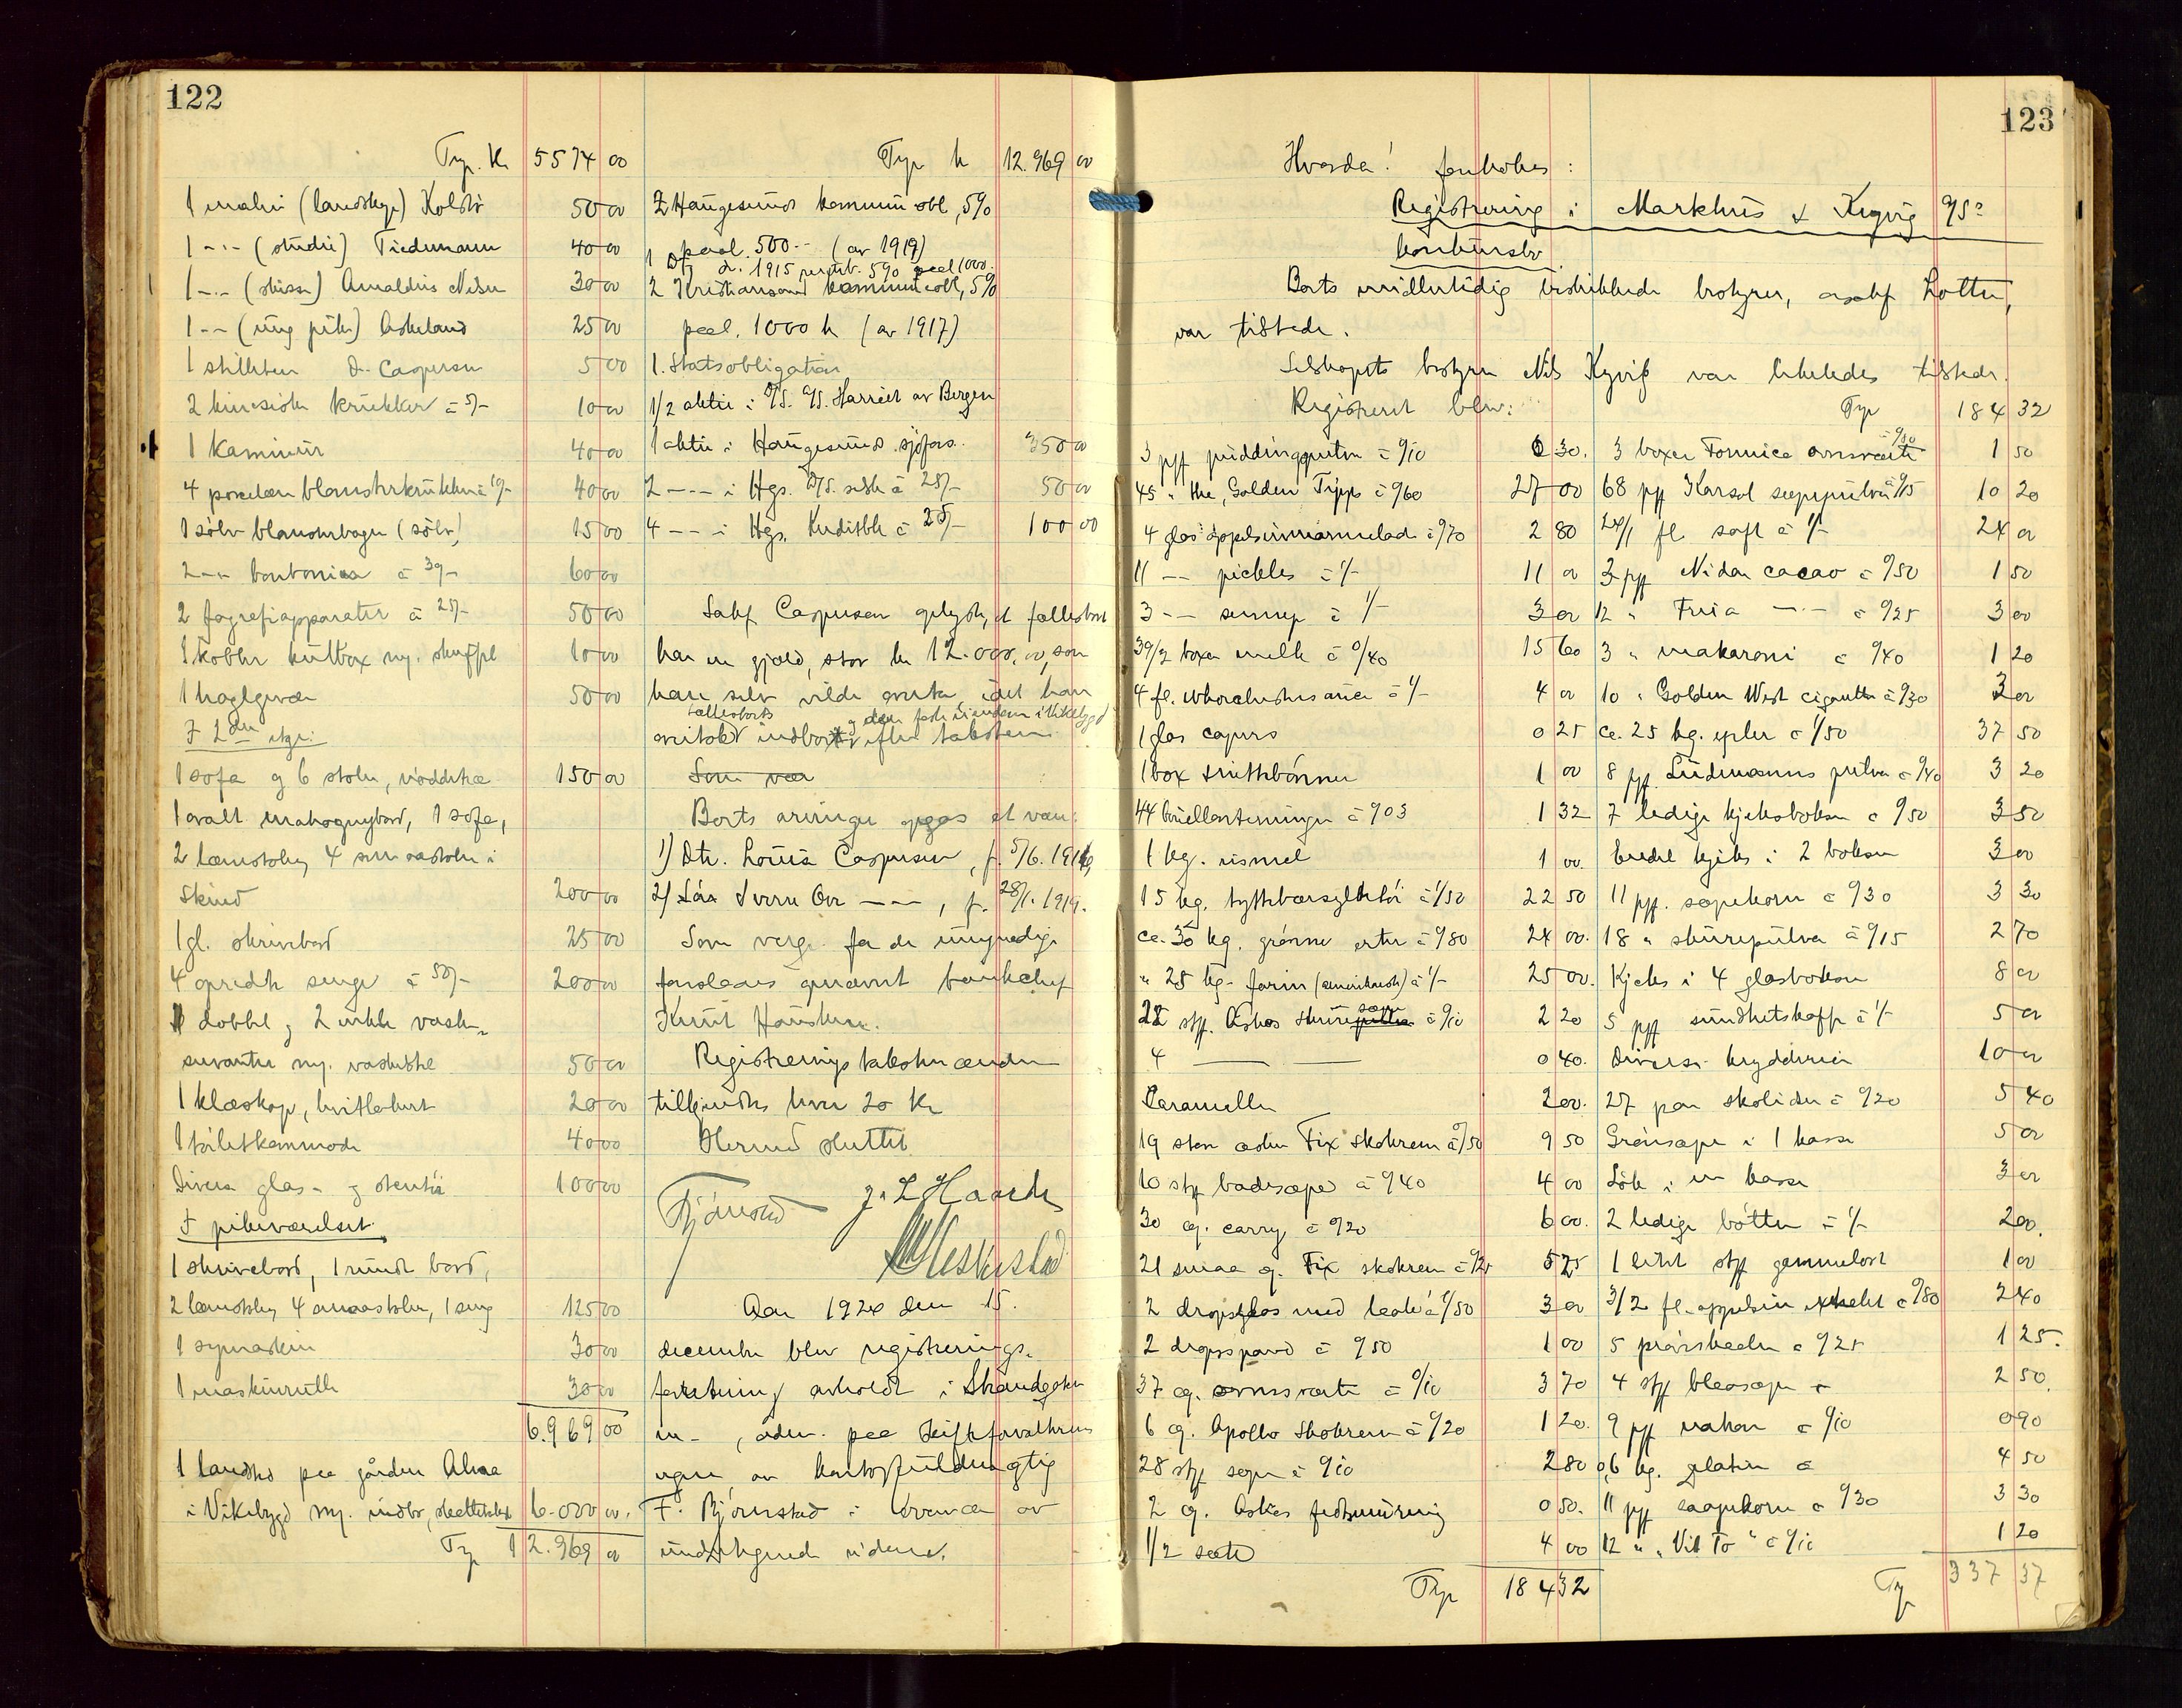 122
Trp. Kr 5574 00
1 maleri (landskap) Koldsr 50 00
1 -"- (studie) Tiedemann 40 00
1 -"- (skisse) Amaldus Nilsen 30 00
1 -"- (ung pike) Askeland 25 00
1 stilleben d. Caspersen 5 00
2 kinesiske krukker á 5/- 10 00
1 Kaminur 40 00
4 porcelæn blomsterkrukker á 10/- 40 00
1 sølv blomstervase (sølv) 15 00
2 -"- bonbonniea á 30/- 60 00
2 fografiapparater á 25/- 50 00
1 kobber kulbox m. skuffel 10 00
1 haglgevær 50 00
I 2den etge:
1 sofa og 6 stoler, rødd 150 00
1 ovalt mahognybord, 1 sofa,
2 lænstoler, 4 smaastoler i
skind 200 00
1 gl. skrivebord 25 00
4 opredte senge á 50/- 200 00
1 dobbel og 2 enkle vaske-
servanter m. vasketøi 50 00
1 klæskap, hvitlakert 20 00
1 toiletkommode 40 00
Diverse glas- og stentøi 100 00
I pikeværelset
1 skrivebord, 1 rundt bord,
2 lænstoler, 4 smaastoler, 1 seng 125 00
1 symaskin 30 00
1 maskinrulle 30 00
6.969 00
1 landsted paa gården Alne
i Vikebygd m. indbo, skattetakst 6.000 00
Trp 12.969 00
Trp kr 12.969 00
2 Haugesunds kommune obl, 5%
paal. 500.- (av 1919)
1 Do d. 1915 5% paal 1000.
2 Kristiansand kommune obl, 5%
paal. 1000 kr (av 1917)
1. Statsobligation
1/2 aktie i D/S. A/S. Harriet av Bergen
1 aktie i Haugesunds sjøfors. 350 00
2 -"- i Hgs. D/S. selsk á 25/- 50 00
4 -"- i Hgs. Kreditbk á 25/- 100 00
Sakf Caspersen oplyste, at fællesboet
har en gjæld, stor kr 12.000,00, som
han selv vilde overta, idet han
fællesboets og den faste eiendom i Vikebygd
overtok indboet efter taksten.
Som vær
Boets arvinger opgas at være:
1) Dtr. Louise Caspersen, f. 5/6. 1916,
2) Søn Sverre Ove -"-, f. 28/1. 1919.
Som verge for de umyndige
foreslaaes opnævnt bankchef
Knut Hauskern.
Registrerings takstmændene
tilkjendtes hver 20 Kr
Dermed sluttet
Bjørnstad J. L. Haarde
Meskestad
Aar 1924 den 15.
december blev registrerings-
forretning avholdt i Skandgaten
nr -, efter paa Skifteforvalterens
vegne av kontorfuldmægtig
F. Bjørnstad i nærvær av
undertegnede vidner.
123
Hvorda! foretokes:
Registrering i Markhus & Kyvig A/S:
konkursbo
Boets midlertidig beskikkede bestyrer, o.r.sakf Lothe,
var tilstede.
Selskapets bestyrer Nils Kyvig var likeledes tilstede.
Registrert blev:
3 pf puddingpulver á 0/10 0 30.
45 " the, Golden Tipps á 0/60 27 00
4 glas appelsinmarmelade á 0/70 2 80
11 -"- pickles á 1/- 11 00
3 -"- sennep á 1/- 3 00
39/2 boxer melk á 0/40 15 60
4 fl. whorchestersauce á 1/- 4 00
1 glas capers 0 25
1 box snittebønner 1 00
44 buillonterninger á 0/03 1 32
1 kg. rismel 1 00.
15 kg. tyttebærsyltetøi á 1/50 22 50
ca. 30 kg. grønne erter á 0/80 24 00.
" 25 kg. farin (amerikansk) á 1/- 25 00.
22 stk. Askos skuresape á 0/10 2 20
4 — — 0 40.
Karameller 2 00.
19 store æsker Fix skokrem á 0/50 9 50
10 stk badesæper á 0/40 4 00
30 æ. carry á 0/20 6 00.
21 smaa æ. Fix skokrem á 0/25 5 25
2 dropsglas med laak á 1/50 3 00
2 dropsspand á 0/50 1 00
37 æ. ovnsværte á 0/10 3 70
6 æ. Apollo skokrem á 0/20 1 20.
28 stk sepe á 0/10 2 80
2 æ. Askos fedtsmurning 0 50.
1/2 sæk 4 00
Trp 184 32
Trp 184 32
3 boxer Fonnica ovnsværte á 0/50 1 50
68 pf Karsol sæpepulver á 0/15 10 20
24/1 fl. saft á 1/- 24 00
3 pf Nidar cacao á 0/50 1 50
12 " Freia -"- á 0/25 3 00
3 " makaroni á 0/40 1 20
10 " Golden West cigaretter á 0/30 3 00
ca. 25 kg. epler á 1/50 37 50
8 pf. Lüdemanns pulver á 0/40 3 20
7 ledige kjeksbokser á 0/50 3 50
Endel kjeks i 2 bokser 3 00
11 pf. sæpekorn á 0/30 3 30
18 " skurepulver á 0/15 2 70
Kjeks i 4 glasbokser 8 00
5 pf sundhetskaffe á 1/- 5 00
Diverse krydderier 10 00
27 par skolisser á 0/20 5 40
Grønsæpe i 1 kasse 5 00
Løk i en kasse 3 00
2 ledige bøtter á 1/- 2 00.
1 litet stk gammelost 1 00
3/2 fl. appelsin extrakt á 0/80 2 40
5 prøvskaaler á 0/25 1 25.
4 stk bleksæpe á 2 50.
9 pf natron á 0/10 0 90
0,6 kg. gelatin á 4 50
11 pf saapekorn á 0/30 3 30
12 " "Vil To" á 0/10 1 20
Trp 337 37